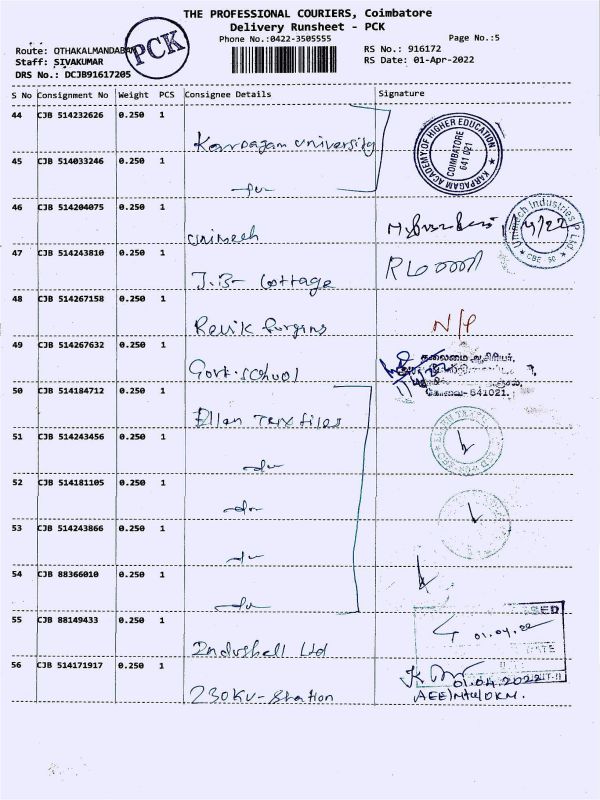 THE PROFESSIONAL COURIERS, Coimbatore
Delivery Runsheet - PCK
Phone No.:0422-3505555
Page No.:5
PCK
Route: OTHAKALMANDABAM
Staff: SIVAKUMAR
DRS No.: DCJB91617205
RS No.: 916172
RS Date: 01-Apr-2022
S No Consignment No Weight PCS Consignee Details Signature
44 CJB 514232626 0.250 1 Karpagam University
KARPAGAM ACADEMY OF HIGHER EDUCATION
COIMBATORE
641 021
45 CJB 514033246 0.250 1 -do-
46 CJB 514204075 0.250 1 Unimech
Unimech Industries P Ltd.
CBE 50
47 CJB 514243810 0.250 1 J.B- Cottage
48 CJB 514267158 0.250 1 N/P
49 CJB 514267632 0.250 1 Govt. school
தலைமை ஆசிரியர்,
கோவை- 641021.
50 CJB 514184712 0.250 1 Ellen Textiles
51 CJB 514243456 0.250 1 -do-
52 CJB 514181105 0.250 1 -do-
53 CJB 514243866 0.250 1 -do-
54 CJB 88366010 0.250 1 -do-
55 CJB 88149433 0.250 1 Indushell Ltd
01.04.22
DATE
56 CJB 514171917 0.250 1 230KV-Station
01.04.2022